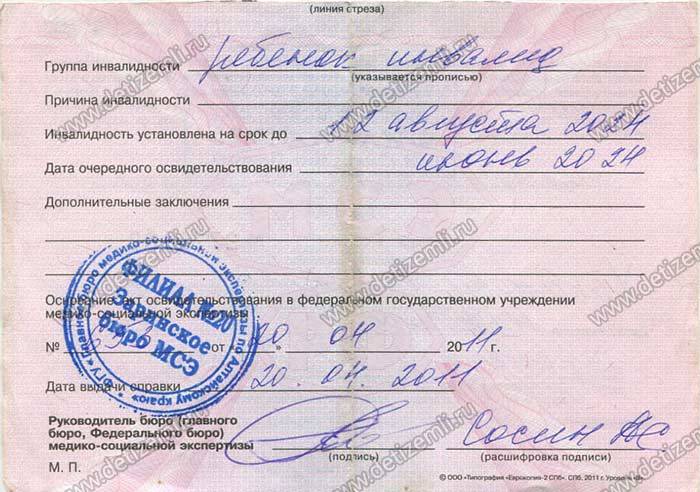 (линия отреза)
Группа инвалидности ребенок инвалид
(указывается прописью)
Причина инвалидности
Инвалидность установлена на срок до 12 августа 2024
Дата очередного освидетельствования июнь 2024
Дополнительные заключения
Основание: акт освидетельствования в федеральном государственном учреждении
медико-социальной экспертизы
№ от «20» 04 2011 г.
Дата выдачи справки 20.04.2011
Руководитель бюро (главного
бюро, Федерального бюро)
медико-социальной экспертизы Сосин
(подпись) (расшифровка подписи)
М. П.
© ООО «Типография «Еврокопия-2 СПб». СПб, 2011 г. Уровень «В».
ФГУ «Главное бюро медико-социальной экспертизы по Алтайскому краю»
ФИЛИАЛ №20
Заринское
бюро МСЭ
www.detizemli.ru